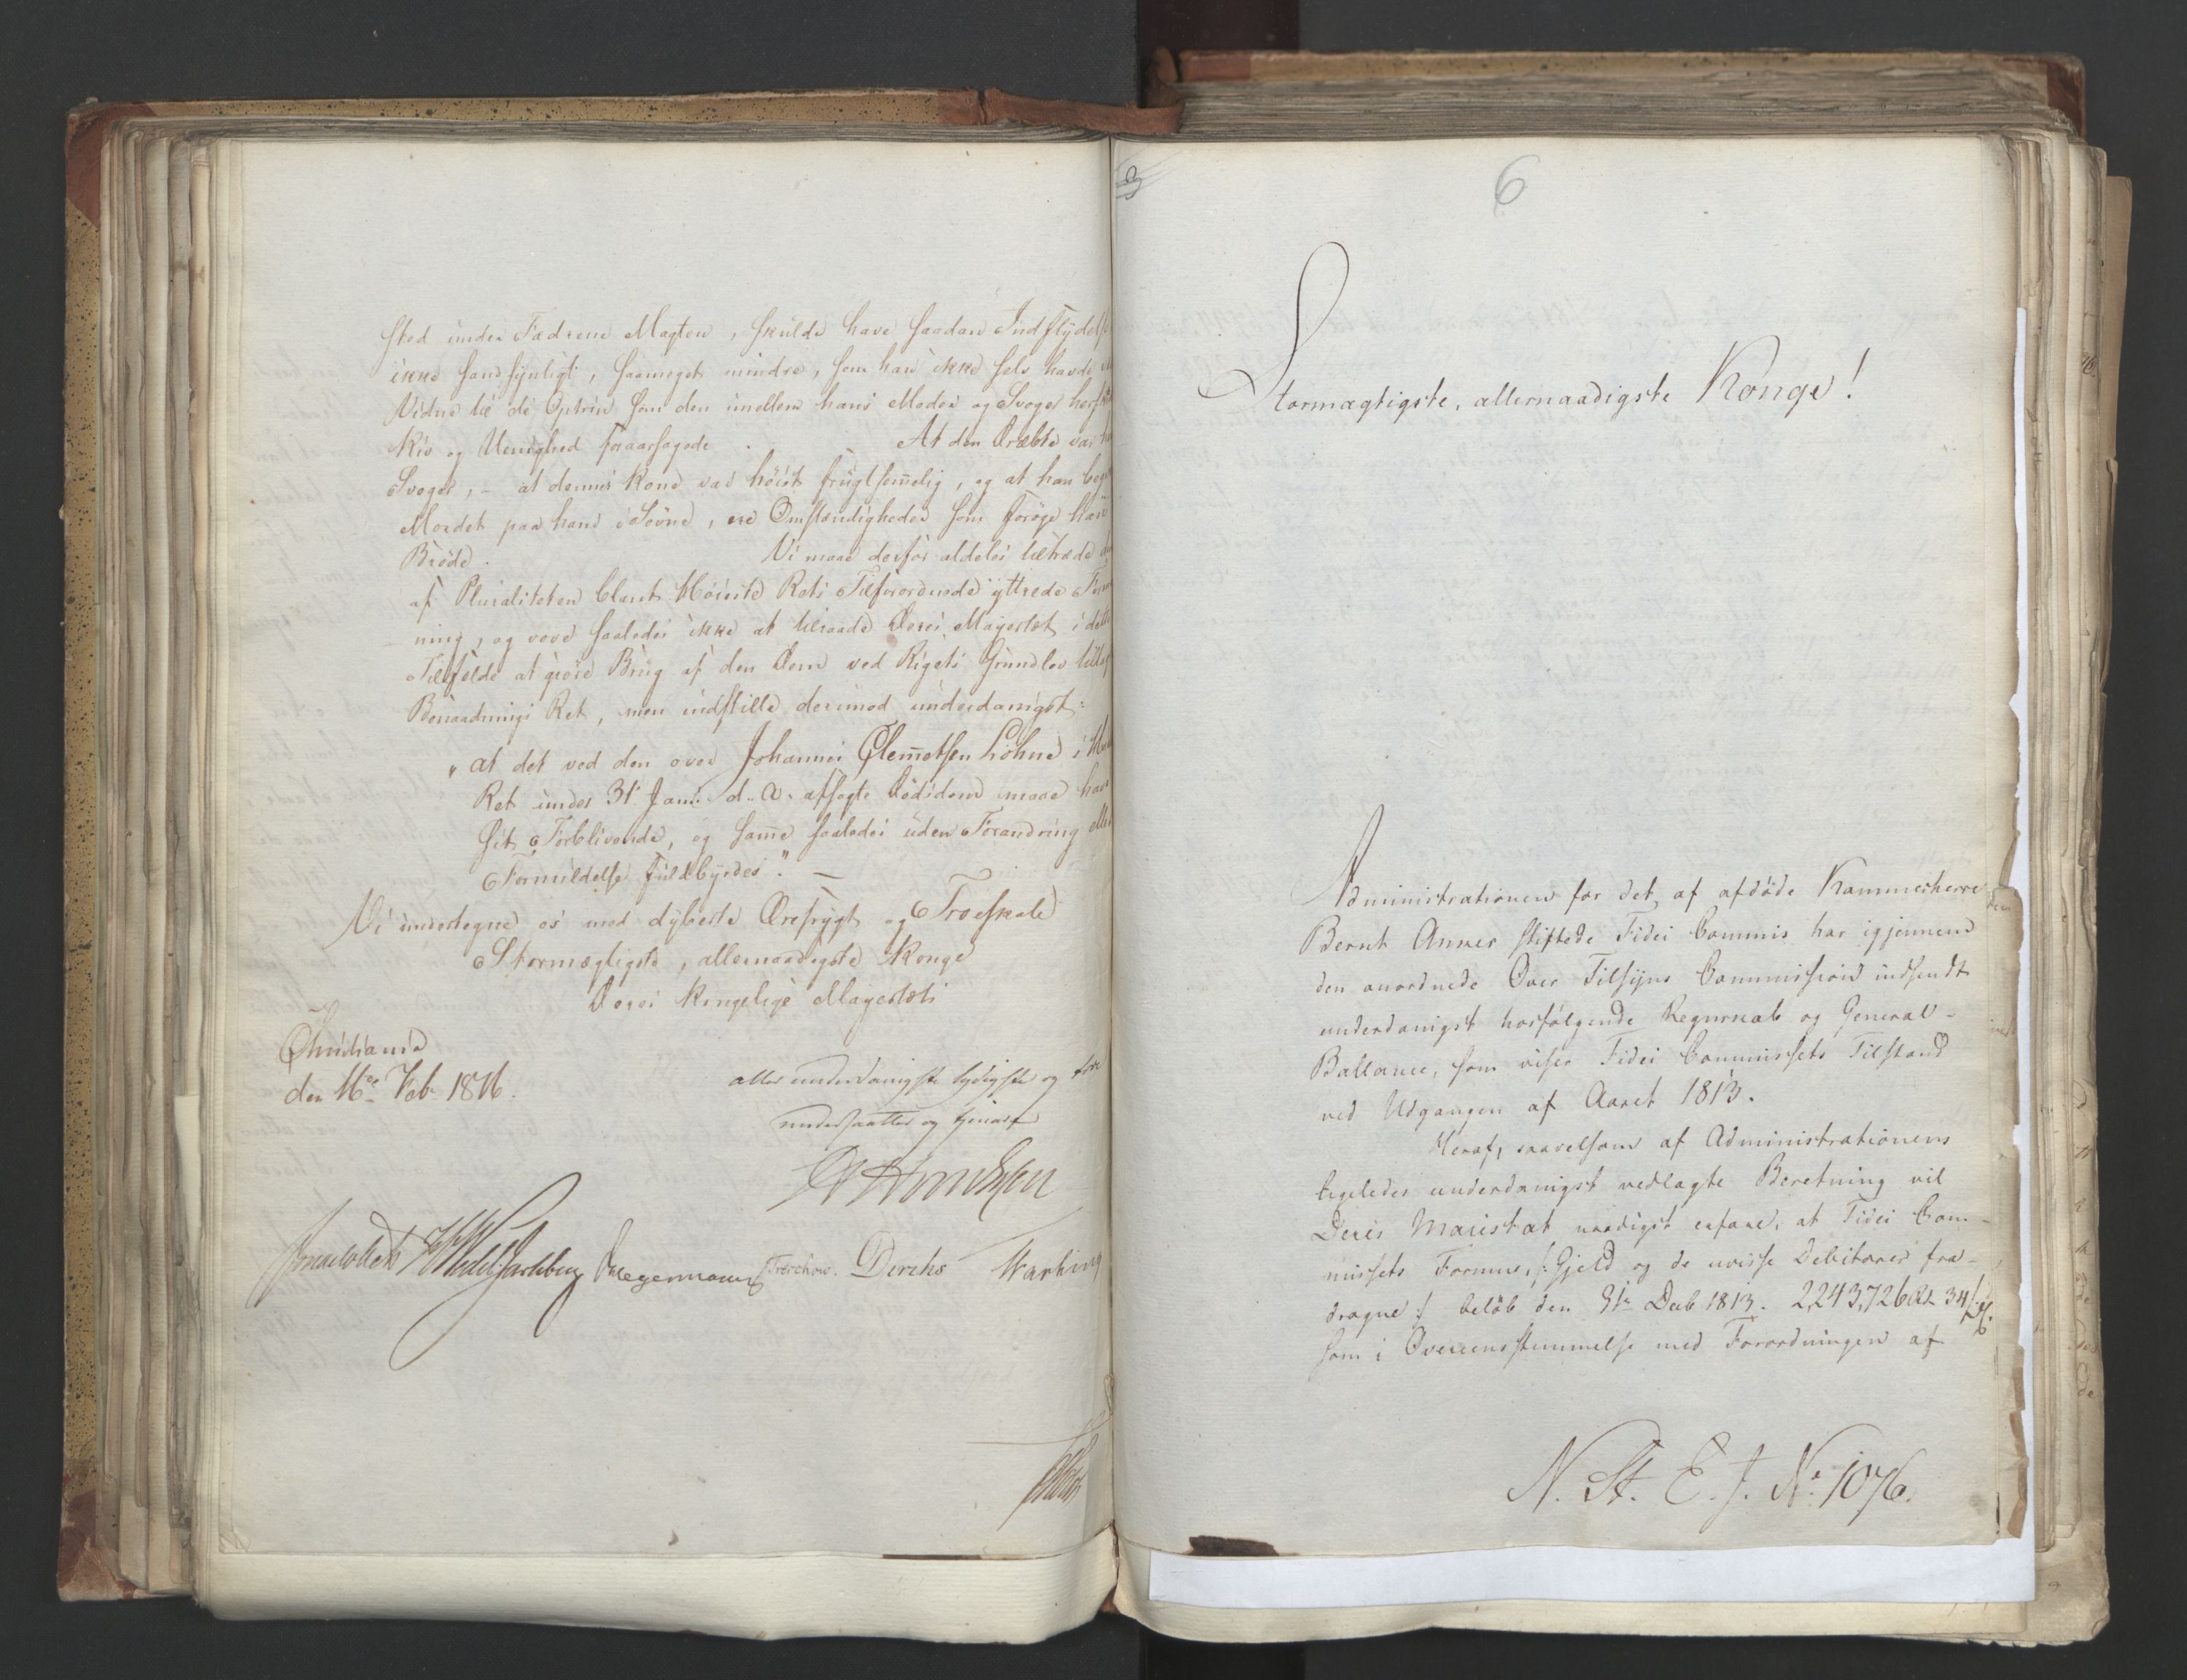 sted under Fædrene Magten, skulde have saadan Indflydelse
ikke sandsynligt, saameget mindre, som han ikke selv havde
Vidne til de Optrin som den imellem hans Moder og Svoger
Kiv og Uenighed foraarsagede. At den Dræbte var
Svoger, – at dennes Kone var høist frugtsom̅elig, og at han
Mordet paa ham i Søvne, ere Omstændigheder som forøge hans
Brøde. Vi maae derfor aldeles tiltræde
af Pluraliteten blant Høieste Rets Tilforordnede yttrede
ning, og vove saaledes ikke at tilraade Deres Majestæt i dette
Tilfælde at giøre Brug af den Dem ved Rigets Grundlov
Benaadnings Ret, men indstille derimod underdanigst:
„at det ved den over Johannes Clem̅etsen Løhne i
Ret under 31te Janr d. A. afsagte Dødsdom maae have
sit Forblivende, og sam̅e saaledes uden Forandring eller
Formildelse fuldbyrdes". –
Vi undertegne os med dybeste Ærefrygt og Troeskab
Stormægtigste, allernaadigste Konge
Deres Kongelige Majestæts
Christiania
den 16de Feb. 1816.
aller underdanigste lydigste og
undersaatter og tienere
Diegerman Treschow. Diriks
6
Stormægtigste, allernaadigste Konge!
Administrationen for det, af afdøde Kammerherre
Bernt Anker stiftede Fidei Commis har igjennem
den anordnede Over Tilsyns Commission indsendt
underdanigst hosfølgende Regnskab og General-
Ballance, som viser Fidei Commissets Tilstand
ved Udgangen af Aaret 1813.
Heraf, saavelsom af Administrationens
ligeledes underdanigst vedlagte Beretning vil
Deres Majestæt naadigst erfare, at Fidei Com-
missets Formue, /: Gjeld og de uvisse Debitorer fra-
dragne :/ beløb den 31te Decb. 1813. 2,243,726 Rd. 34 ß.
som i Overeensstemmelse med Forordningen af
N. St. E. J. No 1076.